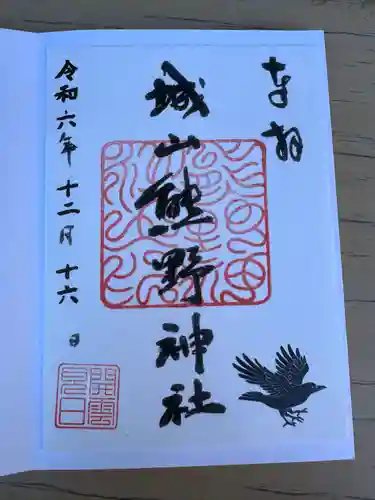 奉拝
城山熊野神社
令和六年十二月十六日
開雲
見日